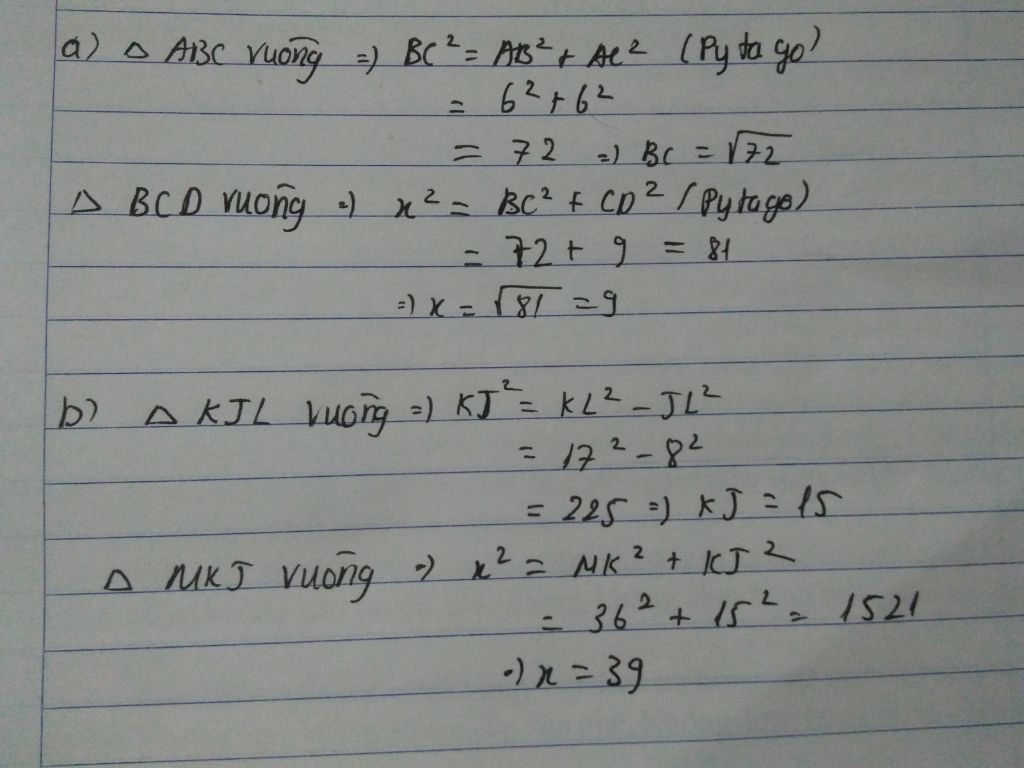 a) Δ ABC vuông => BC² = AB² + AC² (Pytago)
= 6² + 6²
= 72 => BC = √72
Δ BCD vuông => x² = BC² + CD² (Pytago)
= 72 + 9 = 81
=> x = √81 = 9
b) Δ KJL vuông => KJ² = KL² - JL²
= 17² - 8²
= 225 => KJ = 15
Δ MKJ vuông => x² = MK² + KJ²
= 36² + 15² = 1521
=> x = 39